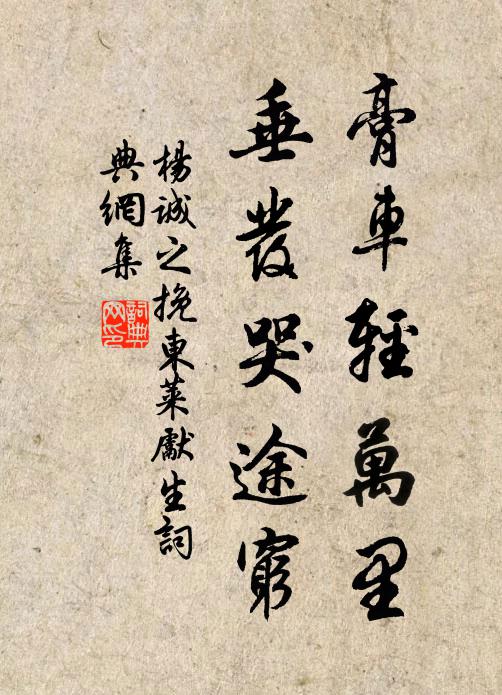 膏車輕萬里
垂發哭途窮
楊誠之挽東萊獻生詞
典網集
詞典
網印